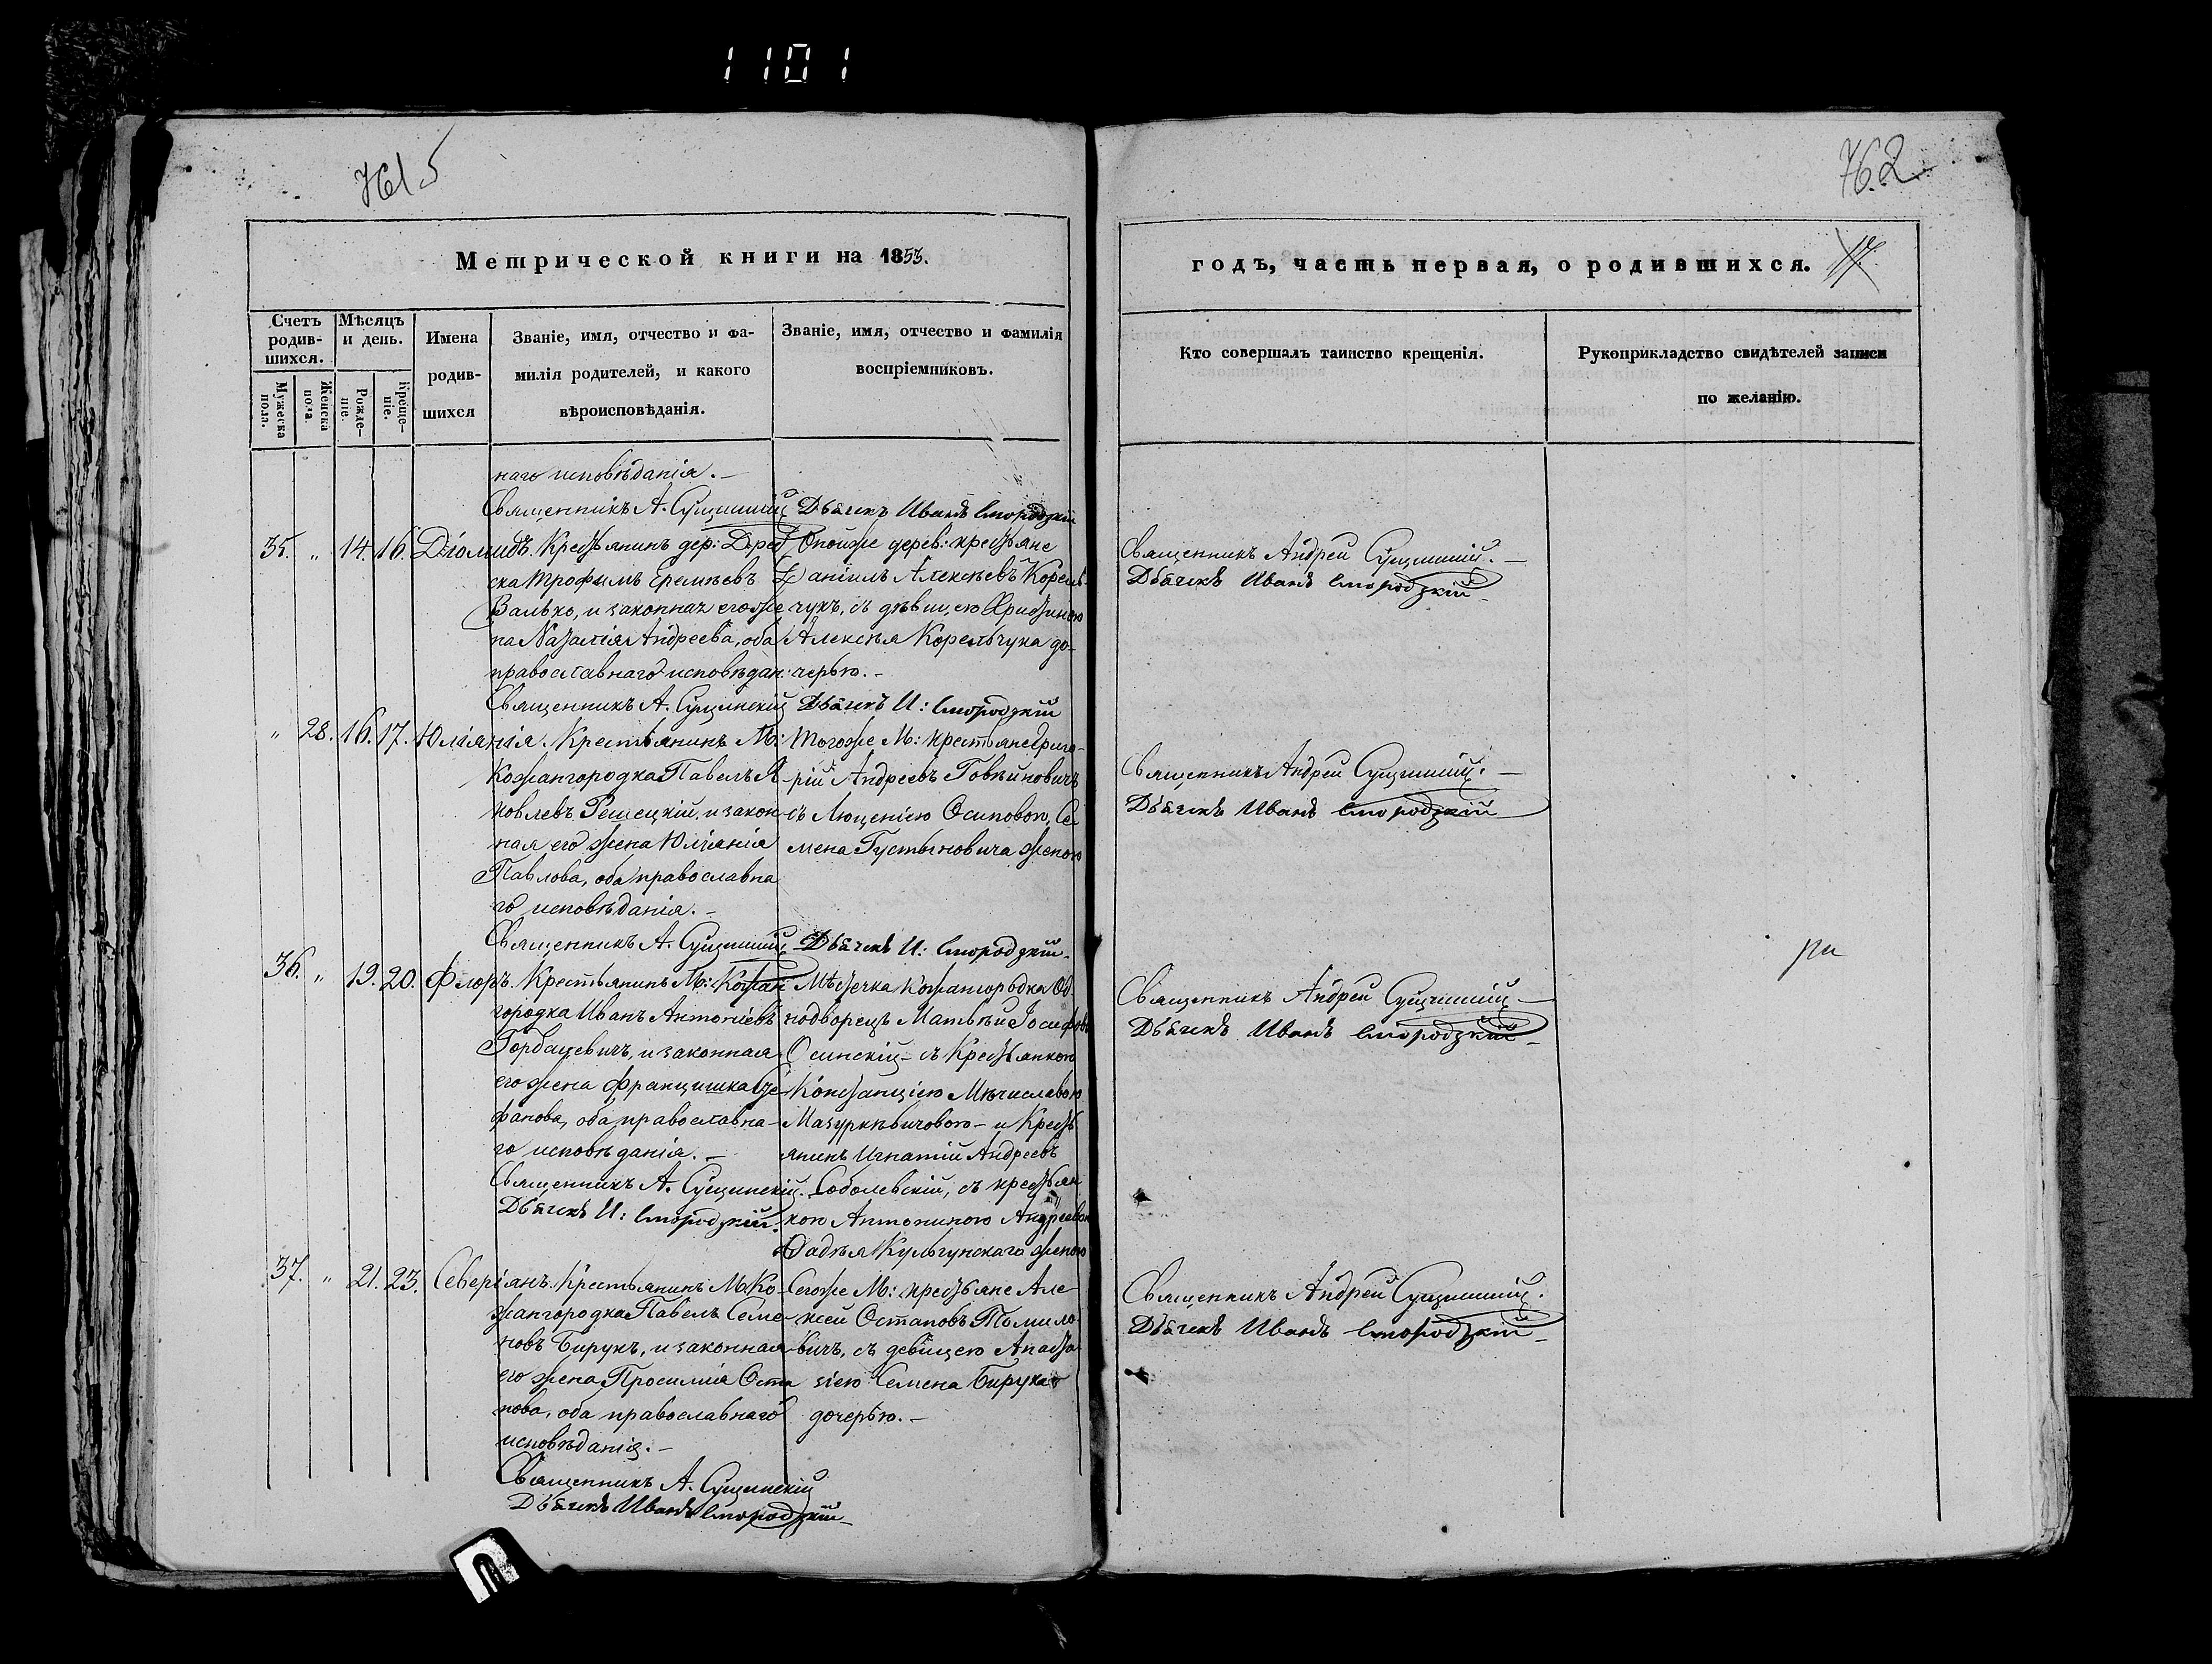 1101
761 5
762
Метрической книги на 1853.
годъ, часть первая, о родившихся. 17.
Счетъ родив-шихся.
Мужеска пола.
Женска пола.
Мѣсяцъ и день.
Рожде-ніе.
Креще-ніе.
Имена
родив-
шихся
Званіе, имя, отчество и фа-
милія родителей, и какого
вѣроисповѣданія.
Званіе, имя, отчество и фамилія
воспріемниковъ.
Кто совершалъ таинство крещенія.
Рукоприкладство свидѣтелей записи
по желанію.
наго исповѣданія.-
Священникъ А. Сущинскій Дьячекъ Иванъ Смородзкій
35. " 14. 16. Діомидъ. Крестьянинъ дер: Дреб
ска Трофымъ Еремѣевъ
Валько, и законная его же
на Наталія Андреева, оба
православнаго исповѣдан:
Тойже дерев: крестьяне
Даніилъ Алексѣевъ Корель-
чукъ, съ дѣвицею Христиною
Алексѣя Корельчука до-
черью.-
Священникъ Андрей Сущинскій.-
Дьячекъ Иванъ Смородзкій
Священникъ А. Сущинскій Дьячекъ И: Смородзкій
" 28. 16. 17. Юліанія. Крестьянинъ М:
Кожангородка Павелъ Я
ковлевъ Решецкій, и закон
ная его жена Юліанія
Павлова, оба православна
го исповѣданія.-
Тогоже М: крестьяне Григо-
рій Андреевъ Говѣйновичъ
съ Люценіею Осиповою, Се
мена Густыновича женою
Священникъ Андрей Сущинскій.-
Дьячекъ Иванъ Смородзкій
Священникъ А. Сущинскій Дьячекъ И: Смородзкій.
36. " 19. 20. Флоръ. Крестьянинъ М: Кожан
городка Иванъ Антоніевъ
Горбацевичъ, и законная
его жена Францишка Сте
фанова, оба православна-
го исповѣданія.-
Священникъ А. Сущинскій.
Дьячекъ И: Смородзкій.
Мѣстечка Кожангородка Од
нодворецъ Матвѣй Іосифовъ
Осинскій- съ Крестьянкою
Констанціею Мѣчиславою
Мазуркѣвичовою- и Кресть
янинъ Игнатій Андреевъ
Соболевскій, съ крестьян
кою Антониною Андреевою
Фадѣя Кульгунскаго женою
Священникъ Андрей Сущинскій-
Дьячекъ Иванъ Смородзкій
37. " 21. 23. Северіянъ. Крестьянинъ М. Ко
жангородка Павелъ Семе
новъ Бирукъ, и законная
его жена Просимія Оста
пова, оба православнаго
исповѣданія.-
Сегоже М: крестьяне Але
ксѣй Остаповъ Томило
вичъ, съ девицею Анаста
зіею Семена Бирука
дочерью.-
Священникъ Андрей Сущинскій.
Дьячекъ Иванъ Смородзкій
Священникъ А. Сущинскій
Дьячекъ Иванъ Смородзкій